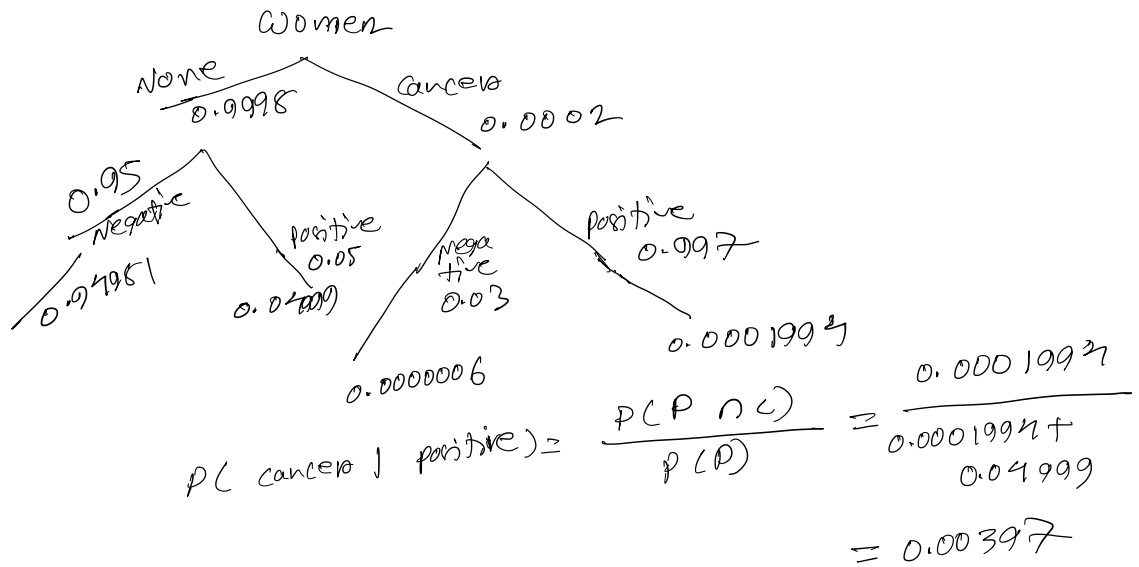 Women
None
Cancer
0.9998
0.0002
0.95
Negative
positive
0.05
Nega
tive
0.03
positive
0.997
0.94981
0.04999
0.0000006
0.0001994
P( cancer | positive) = P(P ∩ C) / P(P) = 0.0001994 / 0.0001994 + 0.04999
= 0.00397